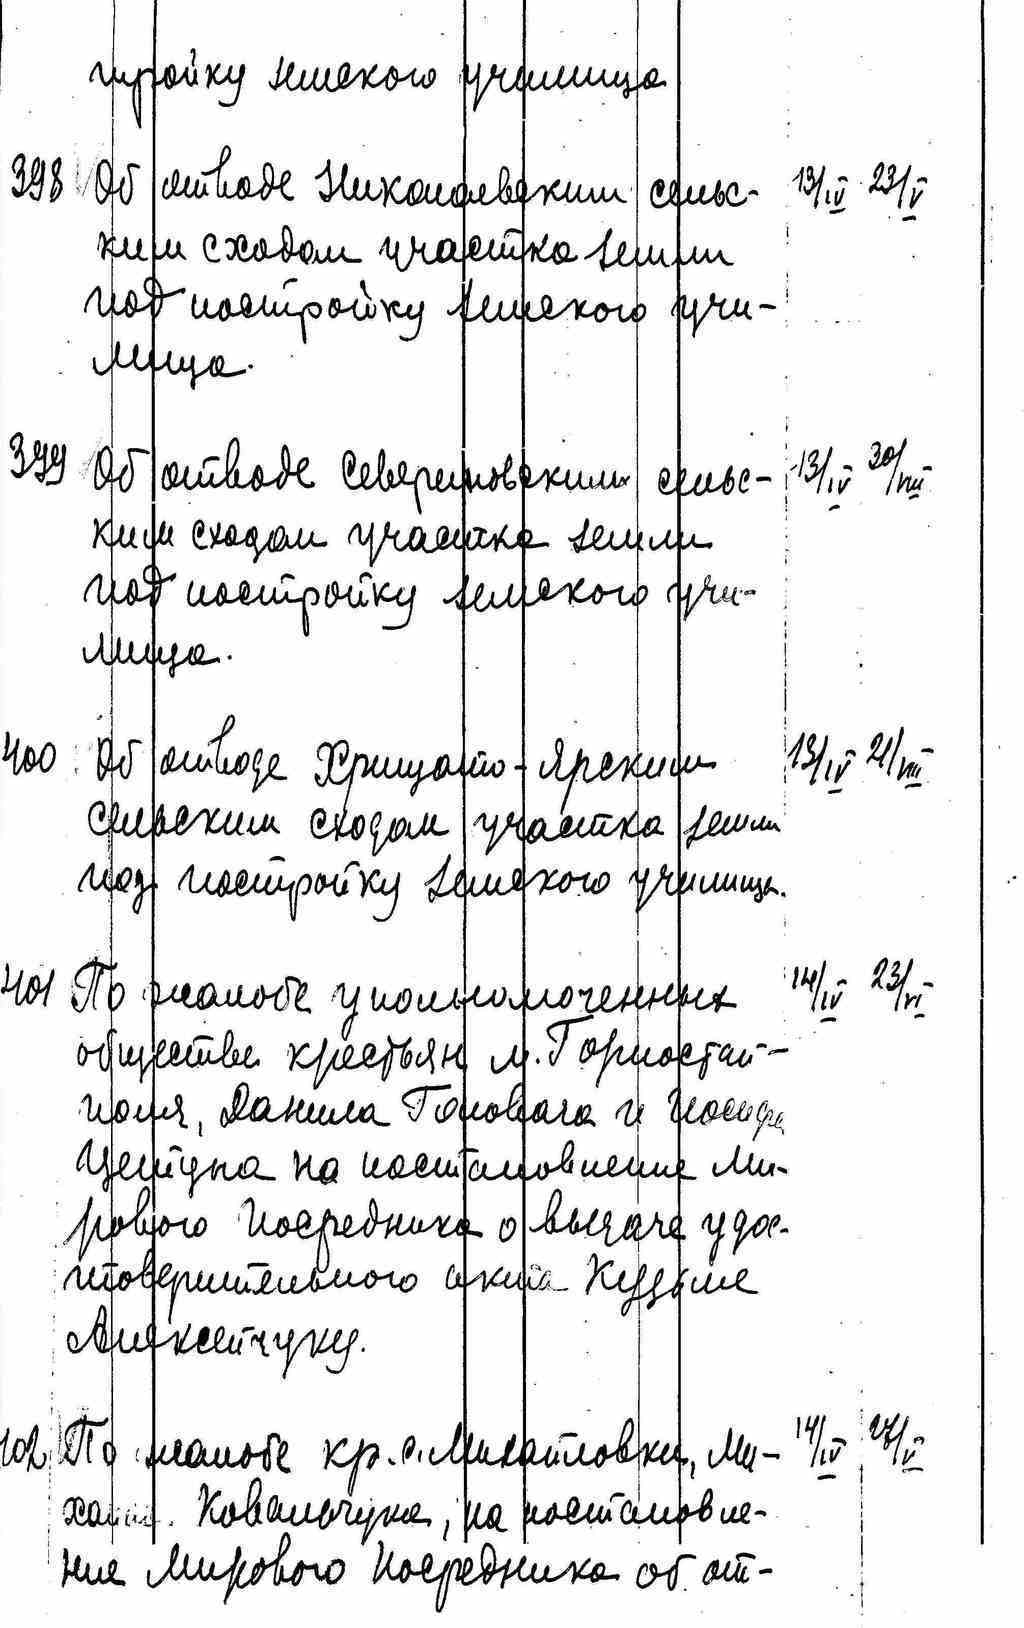 стройку земского училища
398 Об отводе Николаевским сельс- 13/IV 23/V
ким сходом участка земли
под постройку земского учи-
лища.
399 Об отводе Севериновским сельс- 13/IV 30/VIII
ким сходом участка земли
под постройку земского учи-
лища.
400 Об отводе Хрищато-Ярским 13/IV 21/VIII
сельским сходом участка земли
под постройку земского училища.
401 По жалобе уполномоченных 14/IV 23/VI
обществ крестьян м. Горностай-
поля, Данила Головача и Иосифа
на постановление Ми-
рового Посредника о выдаче удос-
товерительного акта Кузьме
Алексейчуку.
402 По жалобе кр. с. Михайловки, Ми- 14/IV 27/V
хаила Ковальчука, на постановле-
ние Мирового Посредника об от-